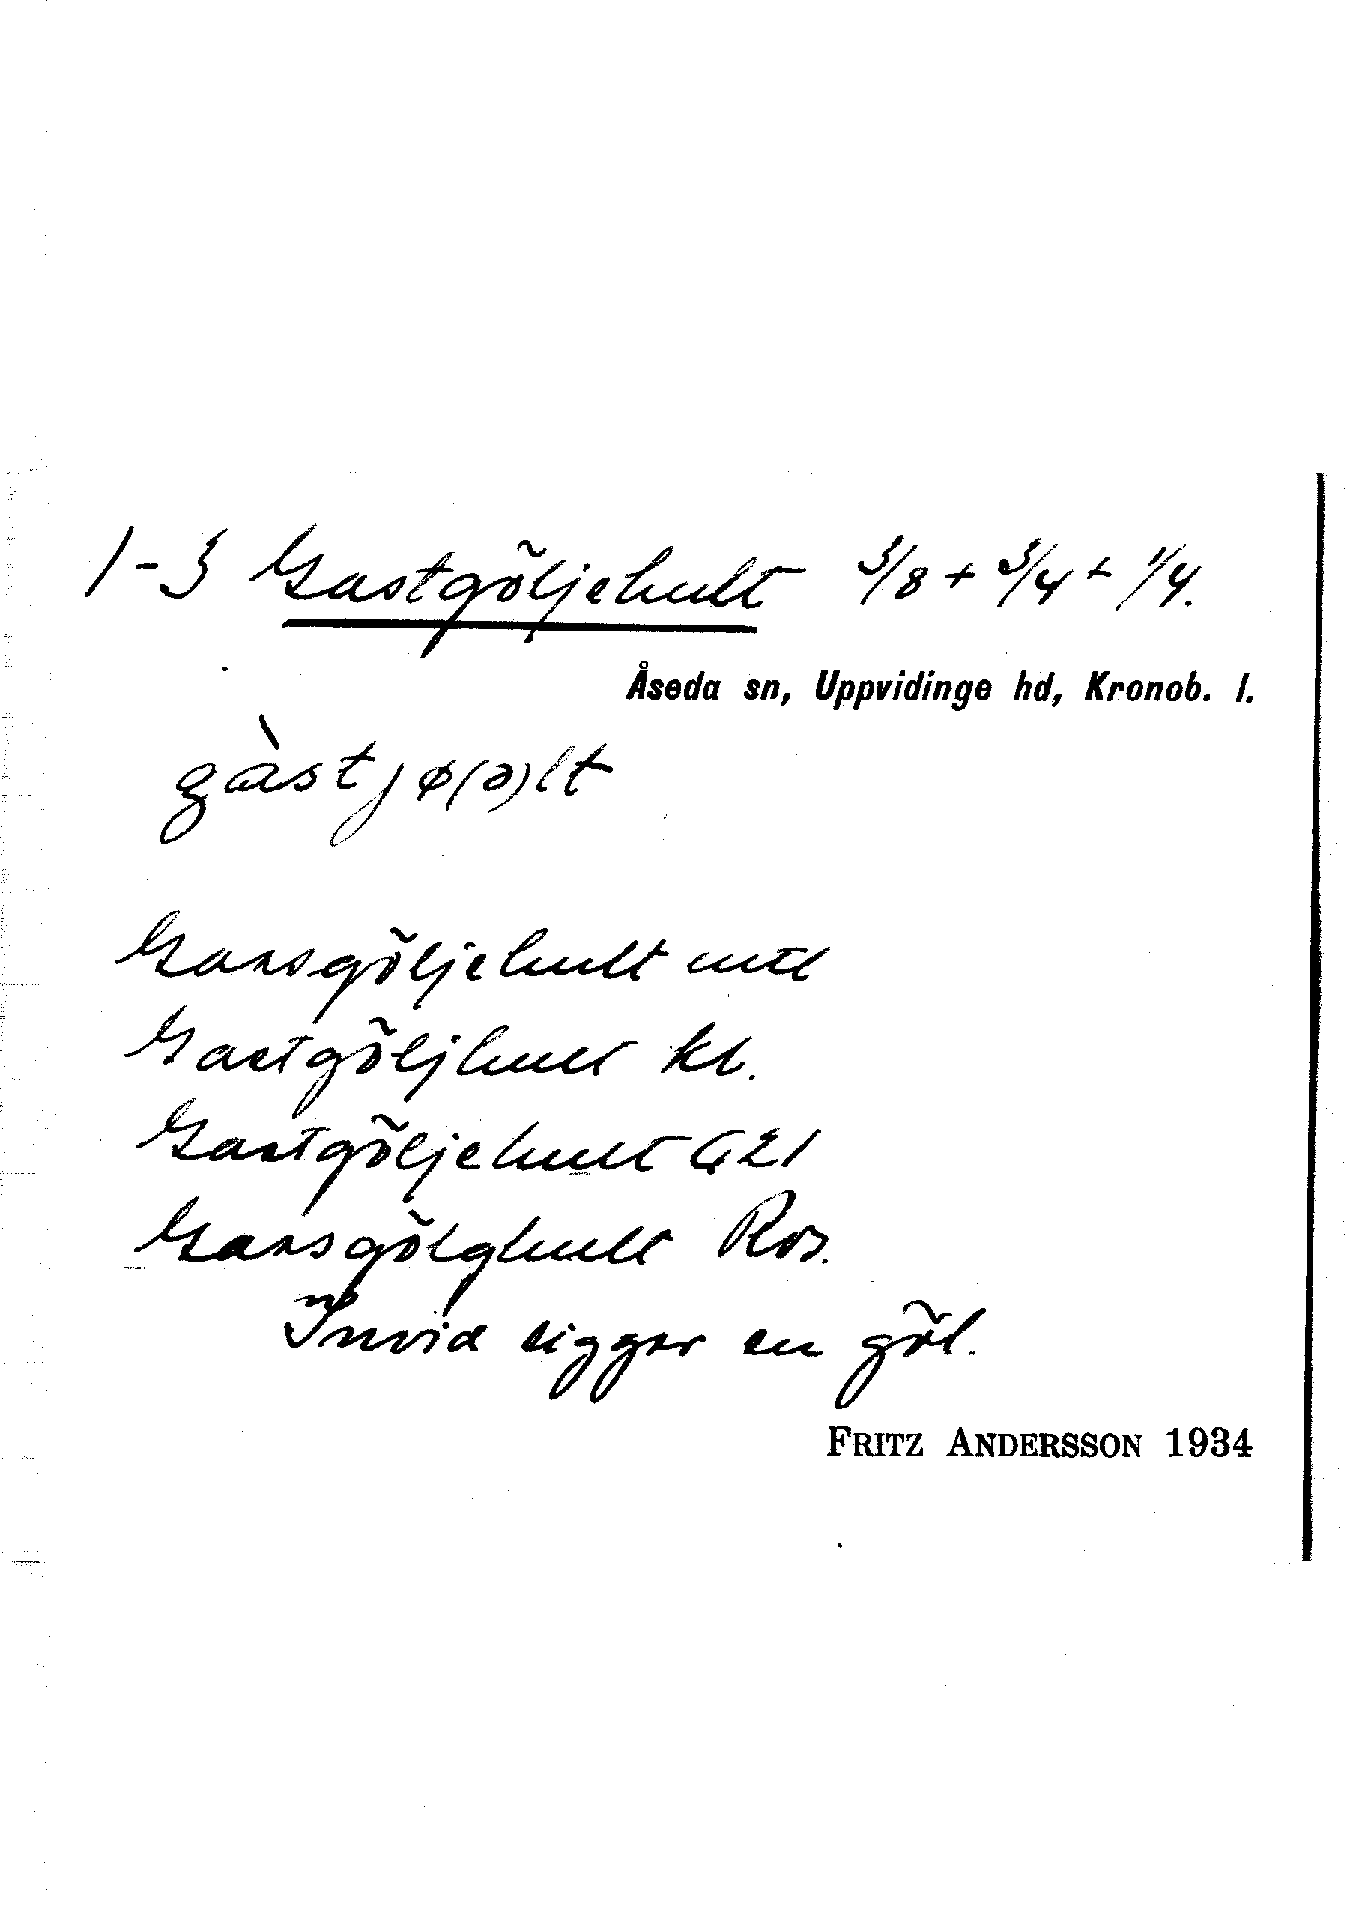 1-3 Gastgöljehult 3/8 + 3/4 + 1/4.
Åseda sn, Uppvidinge hd, Kronob. l.
gàstjø(ə)lt
Gassgöljehult mtl
Gastgöljhult kl.
Gastgöljehult G21
Gassgölghult Ros.
Invid ligger en göl.
FRITZ ANDERSSON 1934